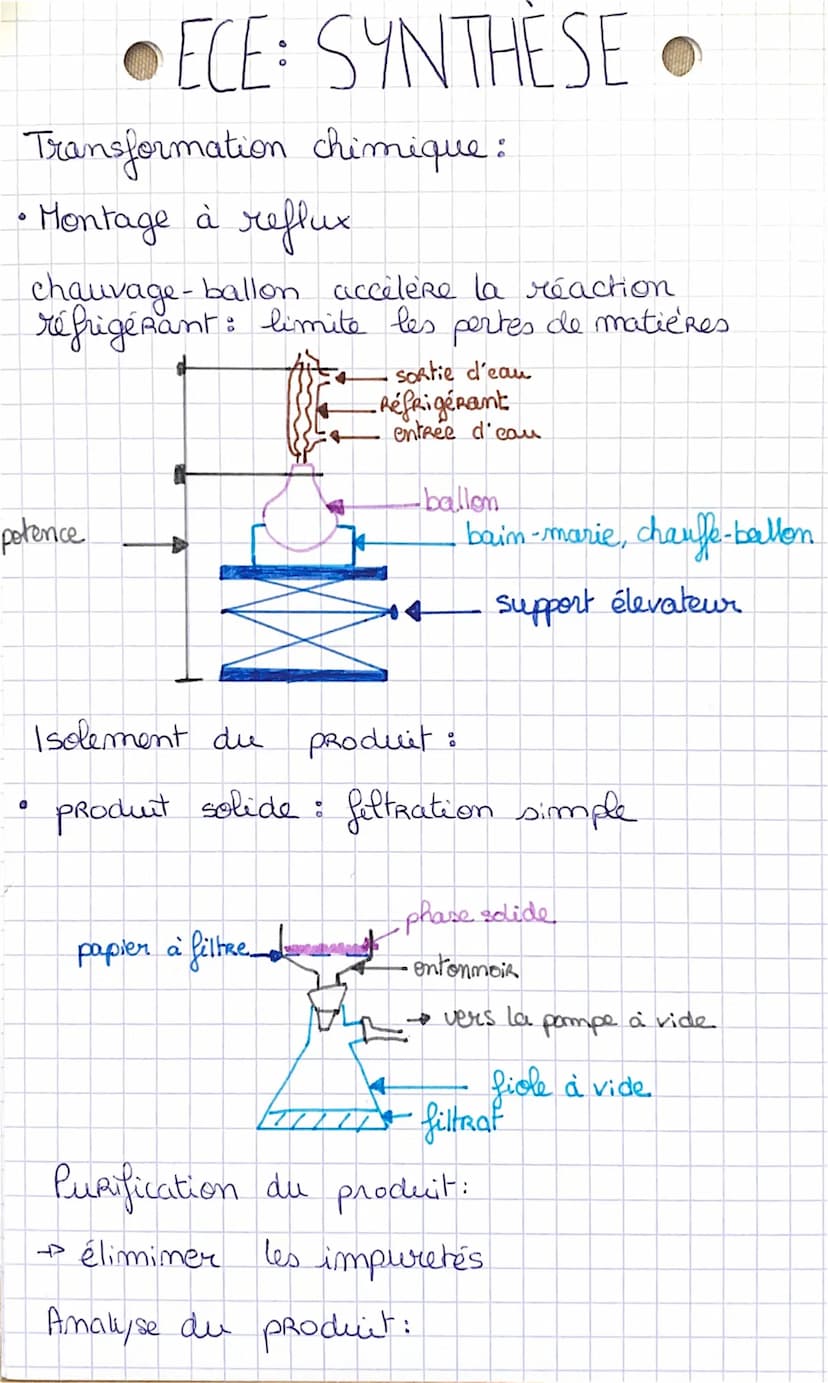 ECE: SYNTHÈSE
Transformation chimique :
• Montage à reflux
chauvage-ballon accélère la réaction
réfrigérant : limite les pertes de matières
sortie d'eau
Réfrigérant
entrée d'eau
ballon
potence
bain-marie, chauffe-ballon
support élevateur
Isolement du produit :
• produit solide : filtration simple
phase solide
papier à filtre
entonnoir
→ vers la pompe à vide
fiole à vide
filtrat
Purification du produit :
→ éliminer les impuretés
Analyse du produit :